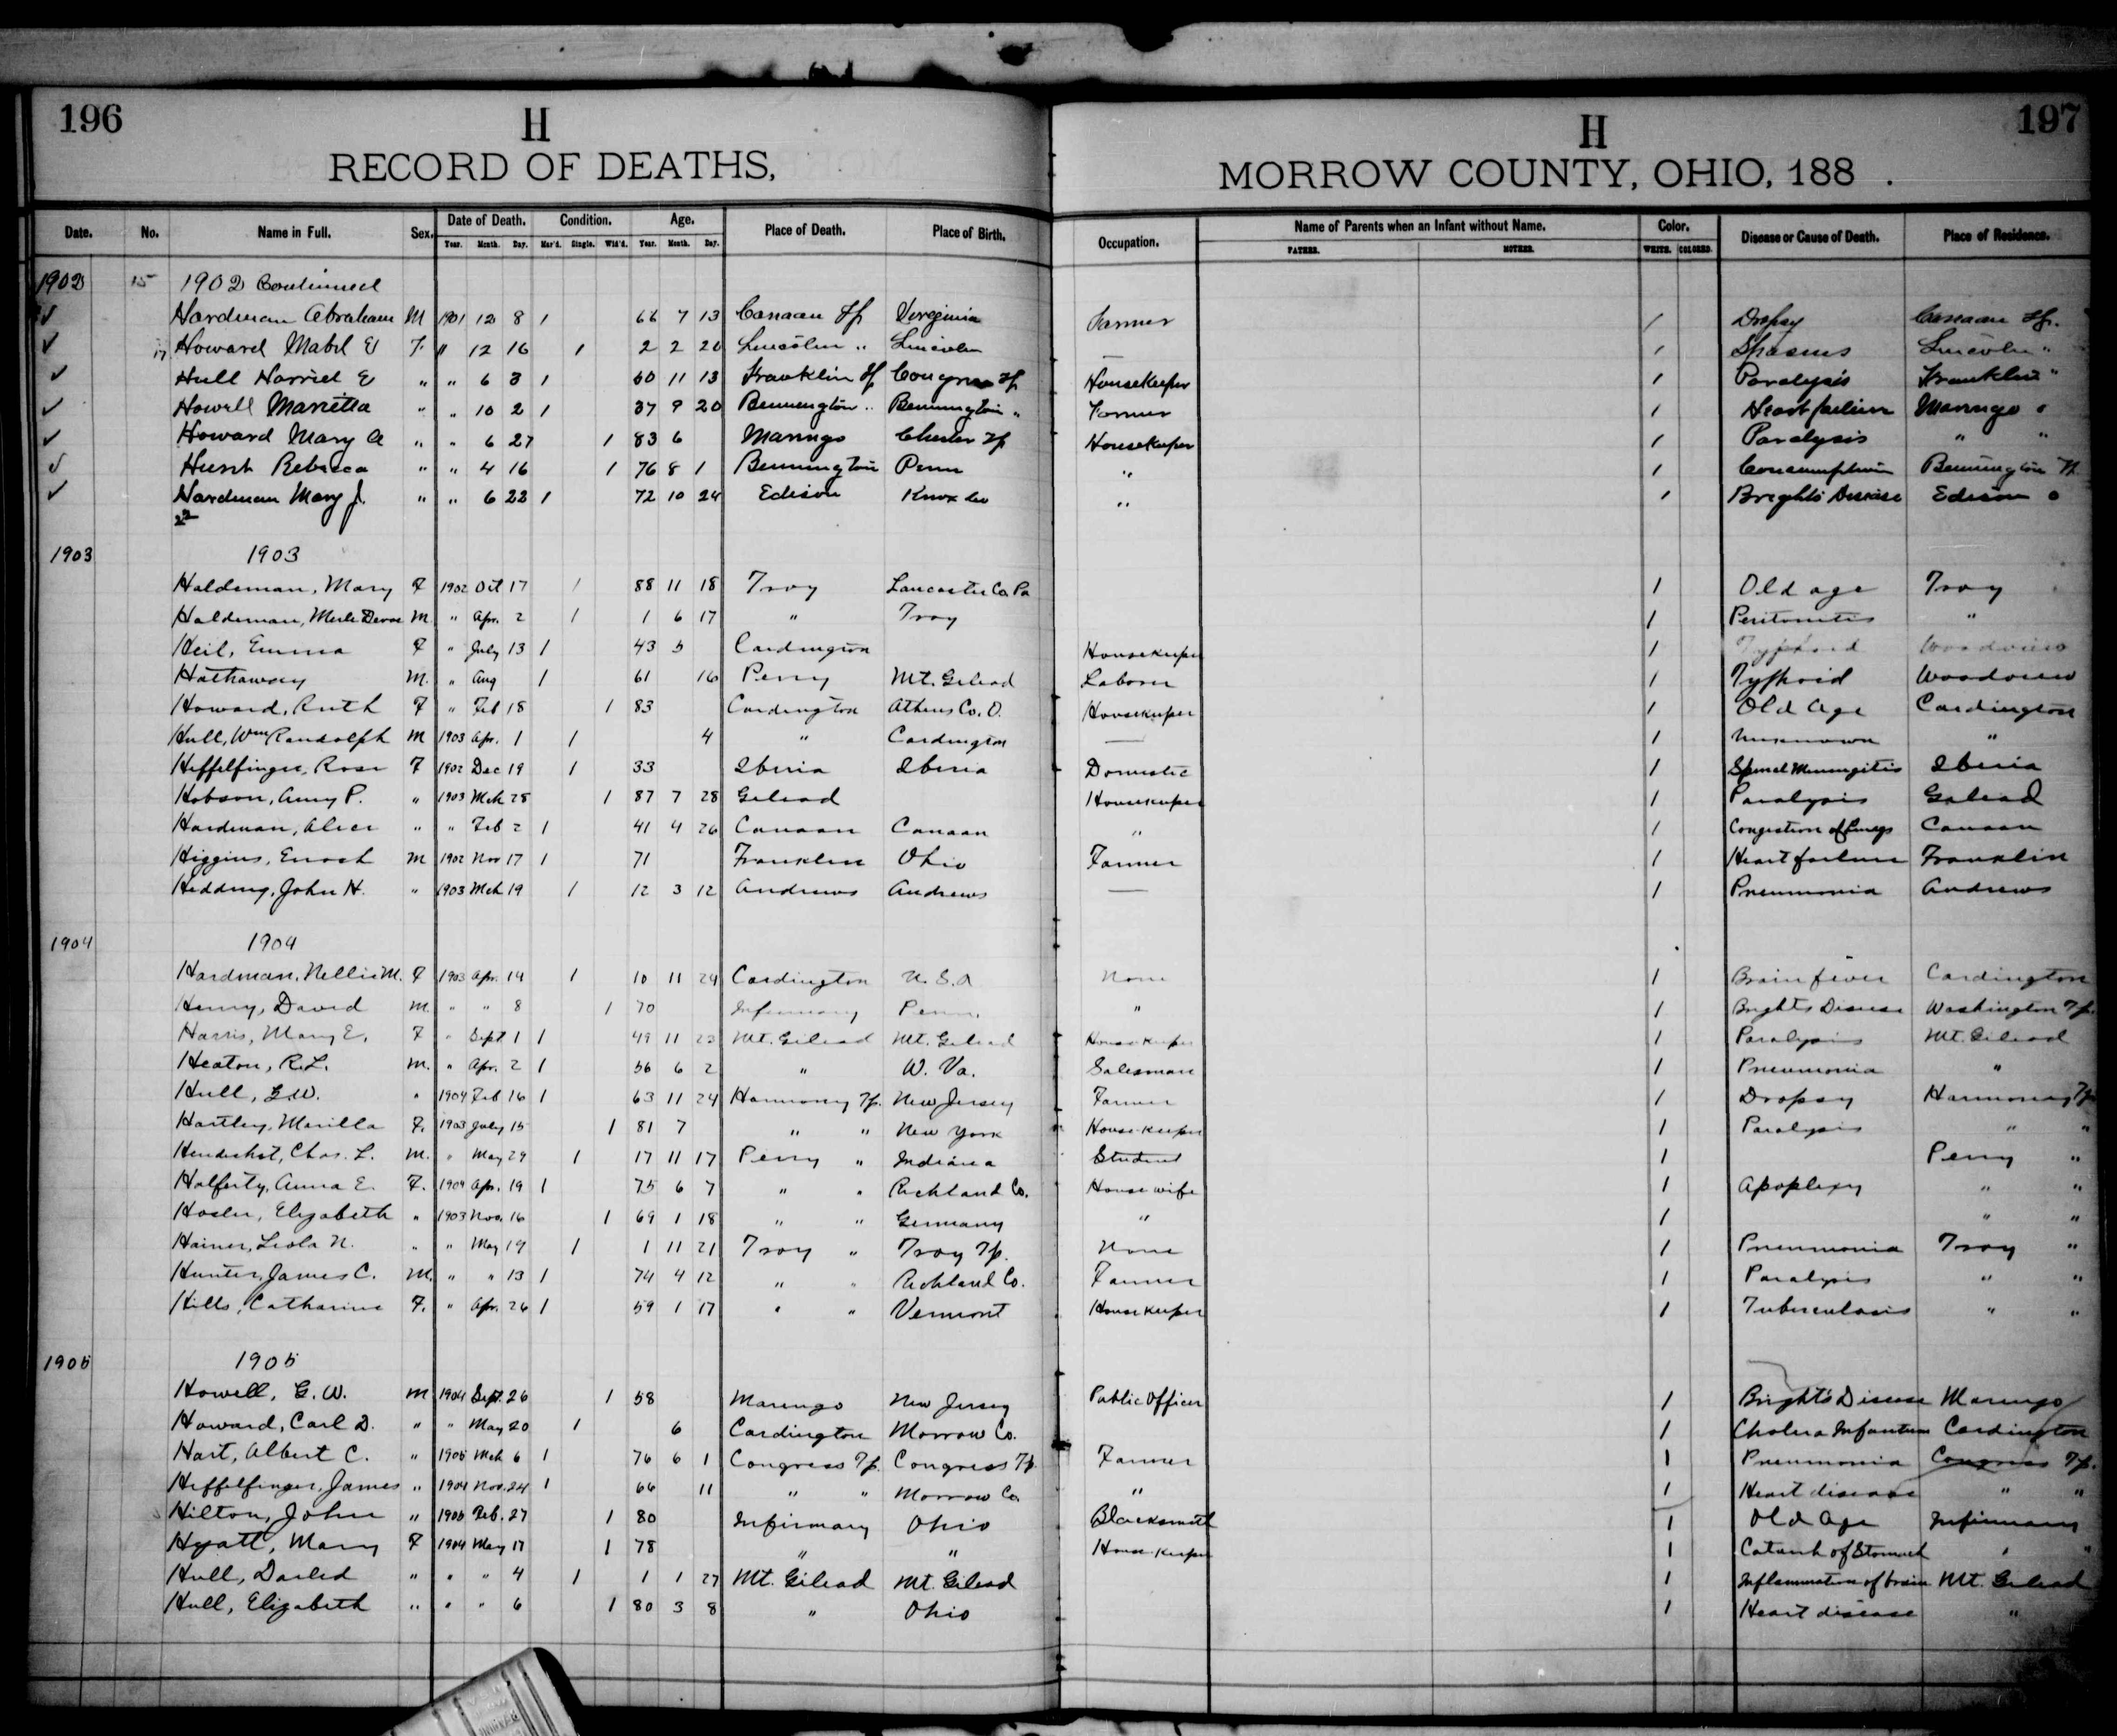 196
H
RECORD OF DEATHS,
197
H
MORROW COUNTY, OHIO, 188 .
Date. No. Name in Full. Sex. Date of Death. Condition. Age. Place of Death. Place of Birth. Occupation. Name of Parents when an Infant without Name. Color. Disease or Cause of Death. Place of Residence.
Year. Month. Day. Mar'd. Single. Wid'd. Year. Month. Day. FATHER. MOTHER. WHITE. COLORED.
1902 15 1902 Continued
✓ Hardman Abraham M 1901 12 8 1 66 7 13 Canaan Tp Virginia Farmer 1 Dropsy Canaan Tp.
✓ 17 Howard Mabel E F. " 12 16 1 2 2 20 Lincoln " Lincoln — 1 Spasms Lincoln "
✓ Hull Harriet E " " 6 3 1 60 11 13 Franklin Tp Congress Tp Housekeeper 1 Paralysis Franklin "
✓ Howell Marietta " " 10 2 1 37 9 20 Bennington " Bennington " Farmer 1 Heart failure Marengo
✓ Howard Mary A " " 6 27 1 83 6 Marengo Chester Tp Housekeeper 1 Paralysis " "
✓ Hurst Rebecca " " 4 16 1 76 8 1 Bennington Penn " 1 Consumption Bennington Tp
✓ Hardman Mary J. " " 6 22 1 72 10 24 Edison Knox Co " 1 Brights Disease Edison
22
1903 1903
Haldeman, Mary F 1902 Oct 17 1 88 11 18 Troy Lancaster Co. Pa 1 Old age Troy
Haldeman, Merle Devoe M. " Apr. 2 1 1 6 17 " Troy 1 Peritonitis "
Heil, Emma F " July 13 1 43 5 Cardington Housekeeper 1 Typhoid Woodview
Hathaway M. " Aug 1 61 16 Perry Mt. Gilead Laborer 1 Typhoid Woodview
Howard, Ruth F " Feb 18 1 83 Cardington Athens Co. O. Housekeeper 1 Old Age Cardington
Hull, Wm Randolph M 1903 Apr. 1 1 4 " Cardington — 1 Unknown "
Heffelfinger, Rose F 1902 Dec 19 1 33 Iberia Iberia Domestic 1 Spinal Meningitis Iberia
Hobson, Amy P. " 1903 Mch 28 1 87 7 28 Gilead Housekeeper 1 Paralysis Gilead
Hardman, Alice " " Feb 2 1 41 4 26 Canaan Canaan " 1 Congestion of Lungs Canaan
Higgins, Enoch M 1902 Nov 17 1 71 Franklin Ohio Farmer 1 Heart failure Franklin
Hedding, John H. " 1903 Mch 19 1 12 3 12 Andrews Andrews — 1 Pneumonia Andrews
1904 1904
Hardman, Nellie M. F 1903 Apr. 14 1 10 11 24 Cardington U.S.A None 1 Brain fever Cardington
Henry, David M. " " 8 1 70 Infirmary Penn. " 1 Brights Disease Washington Tp.
Harris, Mary E. F " Sept 1 1 49 11 23 Mt. Gilead Mt. Gilead Housekeeper 1 Paralysis Mt. Gilead
Heaton, R.L. M. " Apr. 2 1 56 6 2 " W. Va. Salesman 1 Pneumonia "
Hull, G.W. " 1904 Feb 16 1 63 11 24 Harmony Tp. New Jersey Farmer 1 Dropsy Harmony Tp
Hartley, Marilla F. 1903 July 15 1 81 7 " " New York Housekeeper 1 Paralysis " "
Hendershot, Chas. L. M. " May 29 1 17 11 17 Perry " Indiana Student 1 Perry "
Halferty, Anna E. F. 1904 Apr. 19 1 75 6 7 " " Richland Co. Housewife 1 Apoplexy " "
Hosler, Elizabeth " 1903 Nov. 16 1 69 1 18 " " Germany " 1 " "
Hainer, Leola N. " " May 19 1 1 11 21 Troy " Troy Tp. None 1 Pneumonia Troy "
Hunter, James C. M. " " 13 1 74 4 12 " " Richland Co. Farmer 1 Paralysis " "
Hills, Catharine F. " Apr. 26 1 59 1 17 " " Vermont Housekeeper 1 Tuberculosis " "
1905 1905
Howell, G. W. M 1904 Sept. 26 1 58 Marengo New Jersey Public Officer 1 Bright's Disease Marengo
Howard, Carl D. " " May 20 1 6 Cardington Morrow Co. 1 Cholera Infantum Cardington
Hart, Albert C. " 1905 Mch 6 1 76 6 1 Congress Tp. Congress Tp. Farmer 1 Pneumonia Congress Tp.
Heffelfinger, James " 1904 Nov. 24 1 66 11 " " Morrow Co. " 1 Heart disease " "
Hilton, John " 1905 Feb. 27 1 80 Infirmary Ohio Blacksmith 1 Old Age Infirmary
Hyatt, Mary F 1904 May 17 1 78 " " Housekeeper 1 Catarrh of Stomach " "
Hull, " " " 4 1 1 1 27 Mt. Gilead Mt. Gilead 1 Inflammation of brain Mt. Gilead
Hull, Elizabeth " " " 6 1 80 3 8 " Ohio 1 Heart disease "